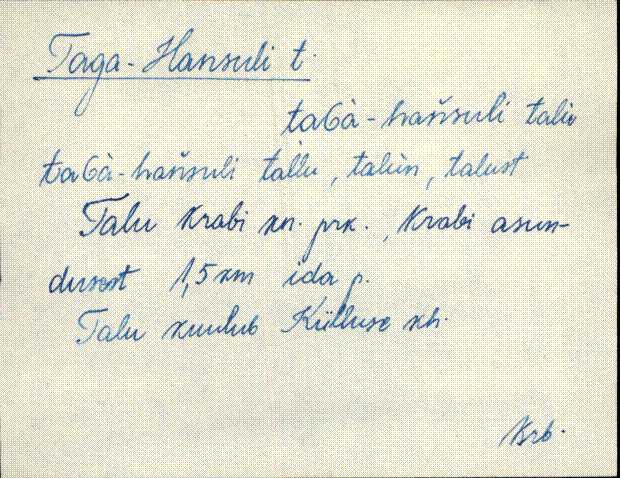 Taga-Hansuli t.
taGà-hańsuli talu
taGà-hańsuli tallu, talùn, talust
Talu Krabi kn. prk., Krabi asun-
dusest 1,5 km ida p.
Talu kuulub Külluse kh.
Krb.